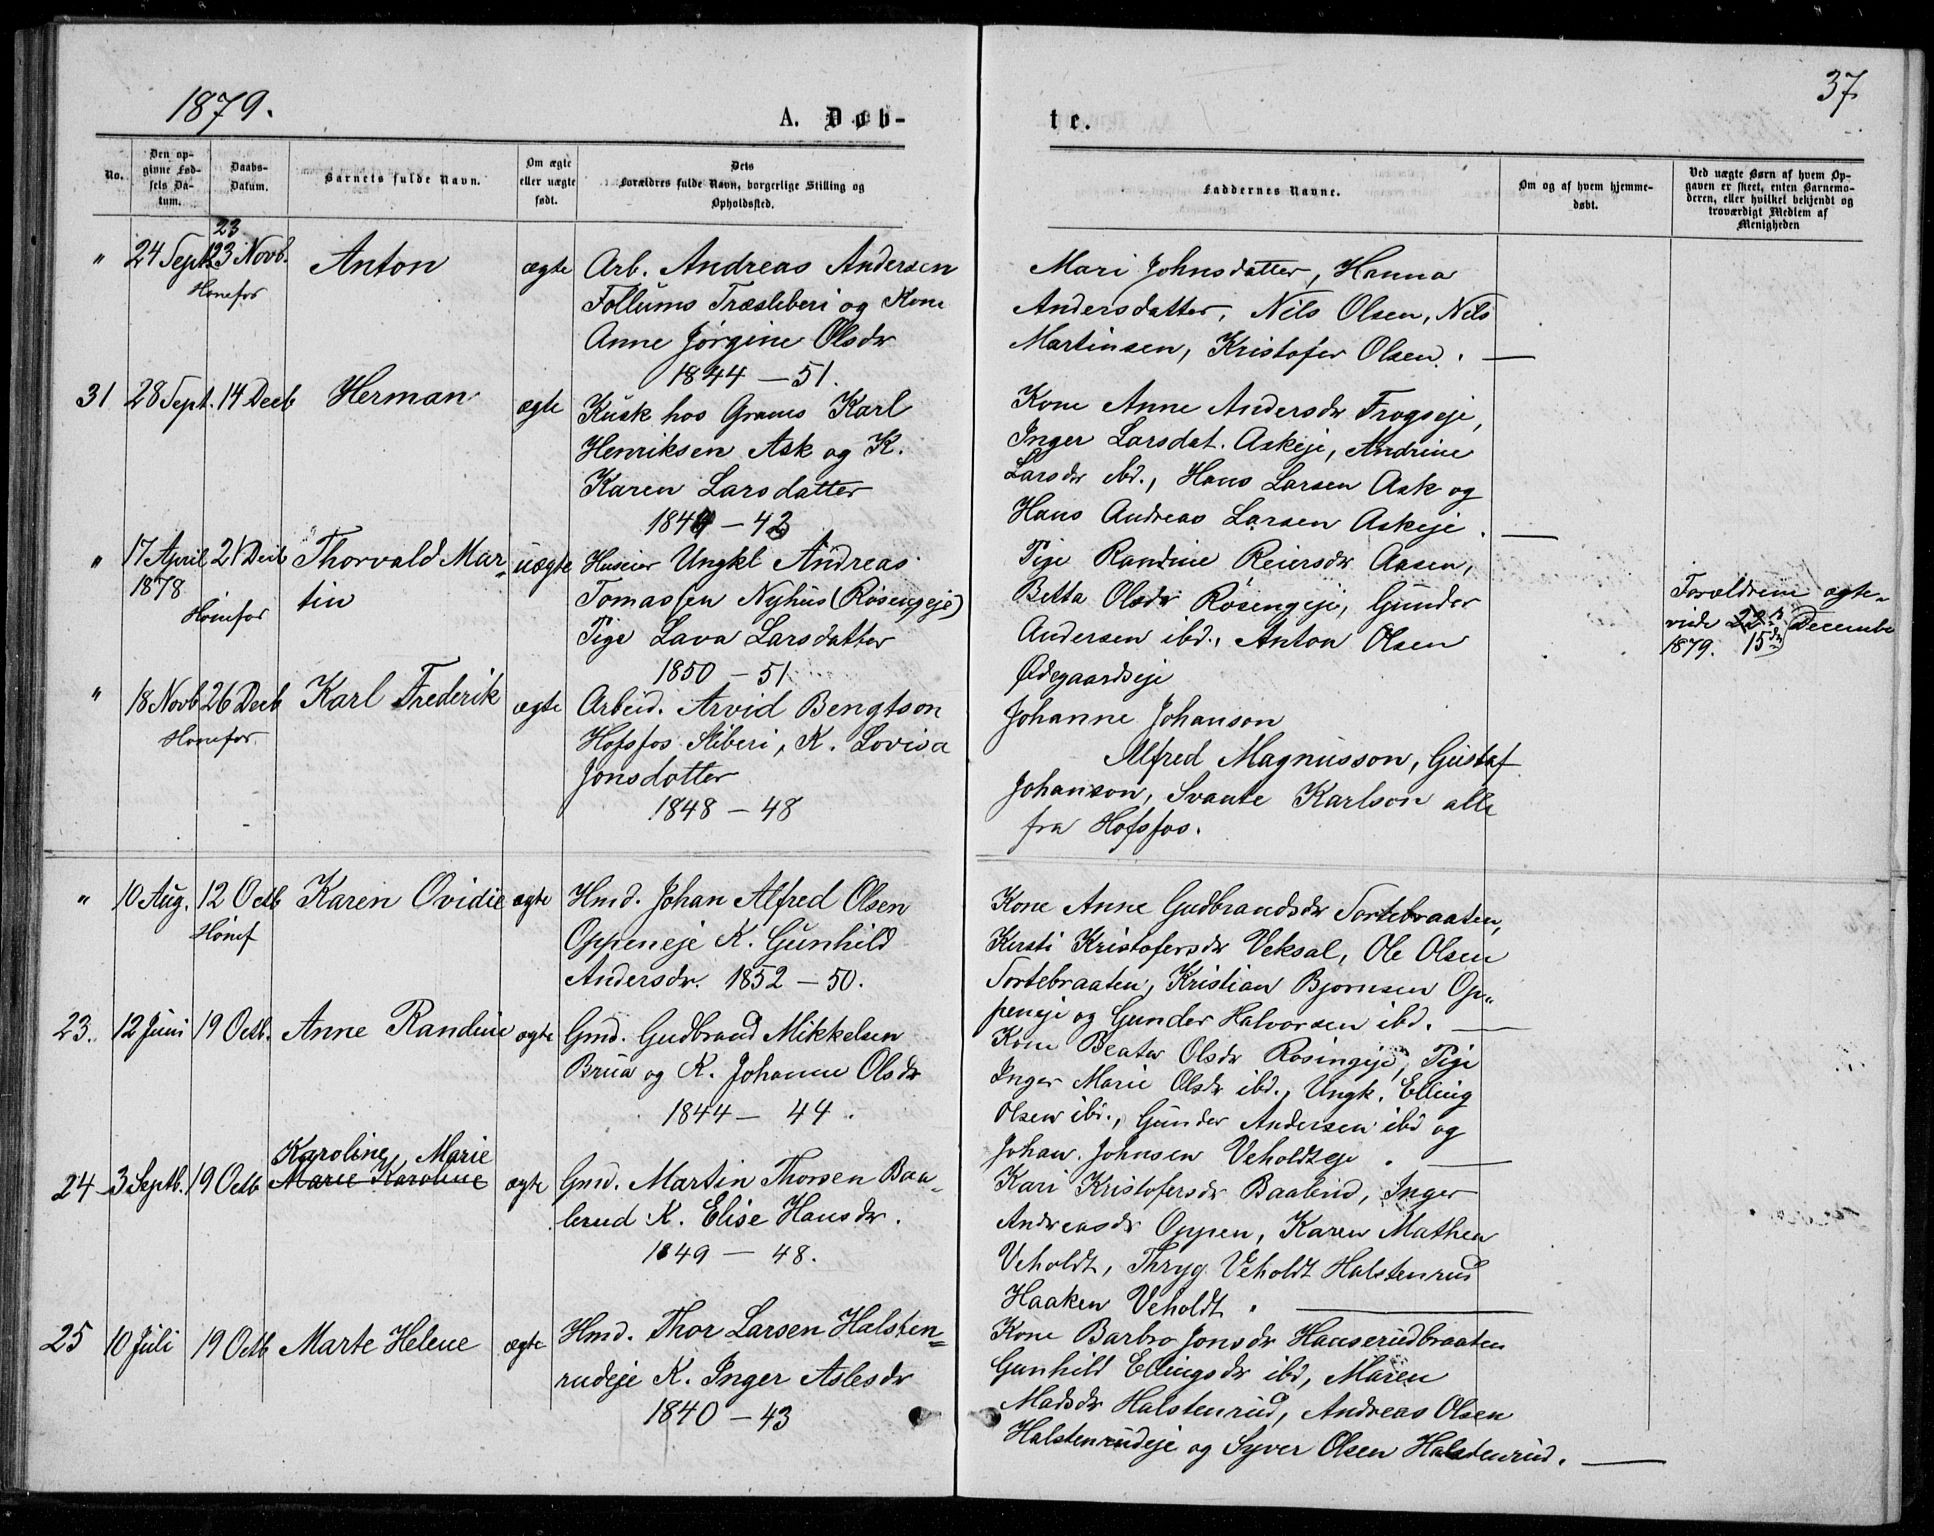 1879.
A. Døb-
te.
37
No.
Den op-
givne Fød-
sels Da-
tum.
Daabs-
Datum.
Barnets fulde Navn.
Om ægte
eller uægte
født.
Dets
Forældres fulde Navn, borgerlige Stilling og
Opholdssted.
Faddernes Navne.
Om og af hvem hjemme-
døbt.
Ved uægte Børn af hvem Op-
gaven er skeet, enten Barnemo-
deren, eller hvilket bekjendt og
troværdigt Medlem af
Menigheden
23
" 24 Sept. 23 Novb. Anton ægte Arb. Andreas Andersen
Hønefos
Follums Træsliberi og Kone
Anne Jørgine Olsdr
1844 – 51.
Mari Johnsdatter, Hanna
Andersdatter, Nils Olsen, Nils
Martinsen, Kristofer Olsen. —
31 28 Sept. 14 Decb Herman ægte Kusk hos Grams Karl
Henriksen Ask og K.
Karen Larsdatter
1844 – 43
Kone Anne Andersdr Frogseje,
Inger Larsdat. Askeje, Andrine
Larsdr ibd., Hans Larsen Ask og
Hans Andreas Larsen Askeje. —
" 17 April 21 Decb Thorvald Mar- uægte Huseier Ungkl Andreas
1878
Hønefos
tin
Tomassen Nyhus (Rosengeje)
Pige Lava Larsdatter
1850 – 51
Pige Randine Reiersdr Aasen,
Betta Olsdr Rosengeje, Gunder
Andersen ibd., Anton Olsen
Ødegaardseje
Forældrene ægte-
viede 22de December
1879. 15de
" 18 Novb 26 Decb Karl Frederik ægte Arbeid. Arvid Bengtson
Hønefos.
Hofsfos Sliberi, K. Lovisa
Jonsdatter
1848 – 48
Johanne Johanson
Alfred Magnusson, Gustaf
Johanson, Svante Karlson alle
fra Hofsfos.
" 10 Aug. 12 Octb Karen Ovidie ægte Hmd. Johan Alfred Olsen
Hønef
Oppeneje K. Gunhild
Andersdr. 1852 – 50.
Kone Anne Gudbrandsdr Sortebraaten,
Kirsti Kristofersdr Veksal, Ole Olsen
Sortebraaten, Kristian Bjørnsen Op-
peneje og Gunder Halvorsen ibd. —
23. 12 Juni 19 Octb. Anne Randine ægte Gmd. Gudbrand Mikkelsen
Brua og K. Johanne Olsdr
1844 – 44.
Kone Beate Olsdr Rosingeje, Pige
Inger Marie Olsdr ibd., Ungk. Elling
Olsen ibd., Gunder Andersen ibd og
Johan. Johnsen Veholdteje. —
Karoline Marie
24 3 Septb. 19 Octb Marie Karoline ægte Gmd. Martin Thorsen Baa-
lerud K. Elise Hansdr.
1849 – 48.
Kari Kristofersdr Baalerud, Inger
Andreasdr Oppen, Karen Mathea
Veholdt, Thryg. Veholdt Halstenrud
Haaken Veholdt. —
25 10 Juli 19 Octb Marte Helene ægte Hmd. Thor Larsen Halsten-
rudeje K. Inger Aslesdr
1840 – 43
Kone Barbro Jonsdr Hanserudbraaten
Gunhild Ellingsdr ibd, Maren
Madsdr Halstenrud, Andreas Olsen
Halstenrudeje og Syver Olsen Halstenrud. —